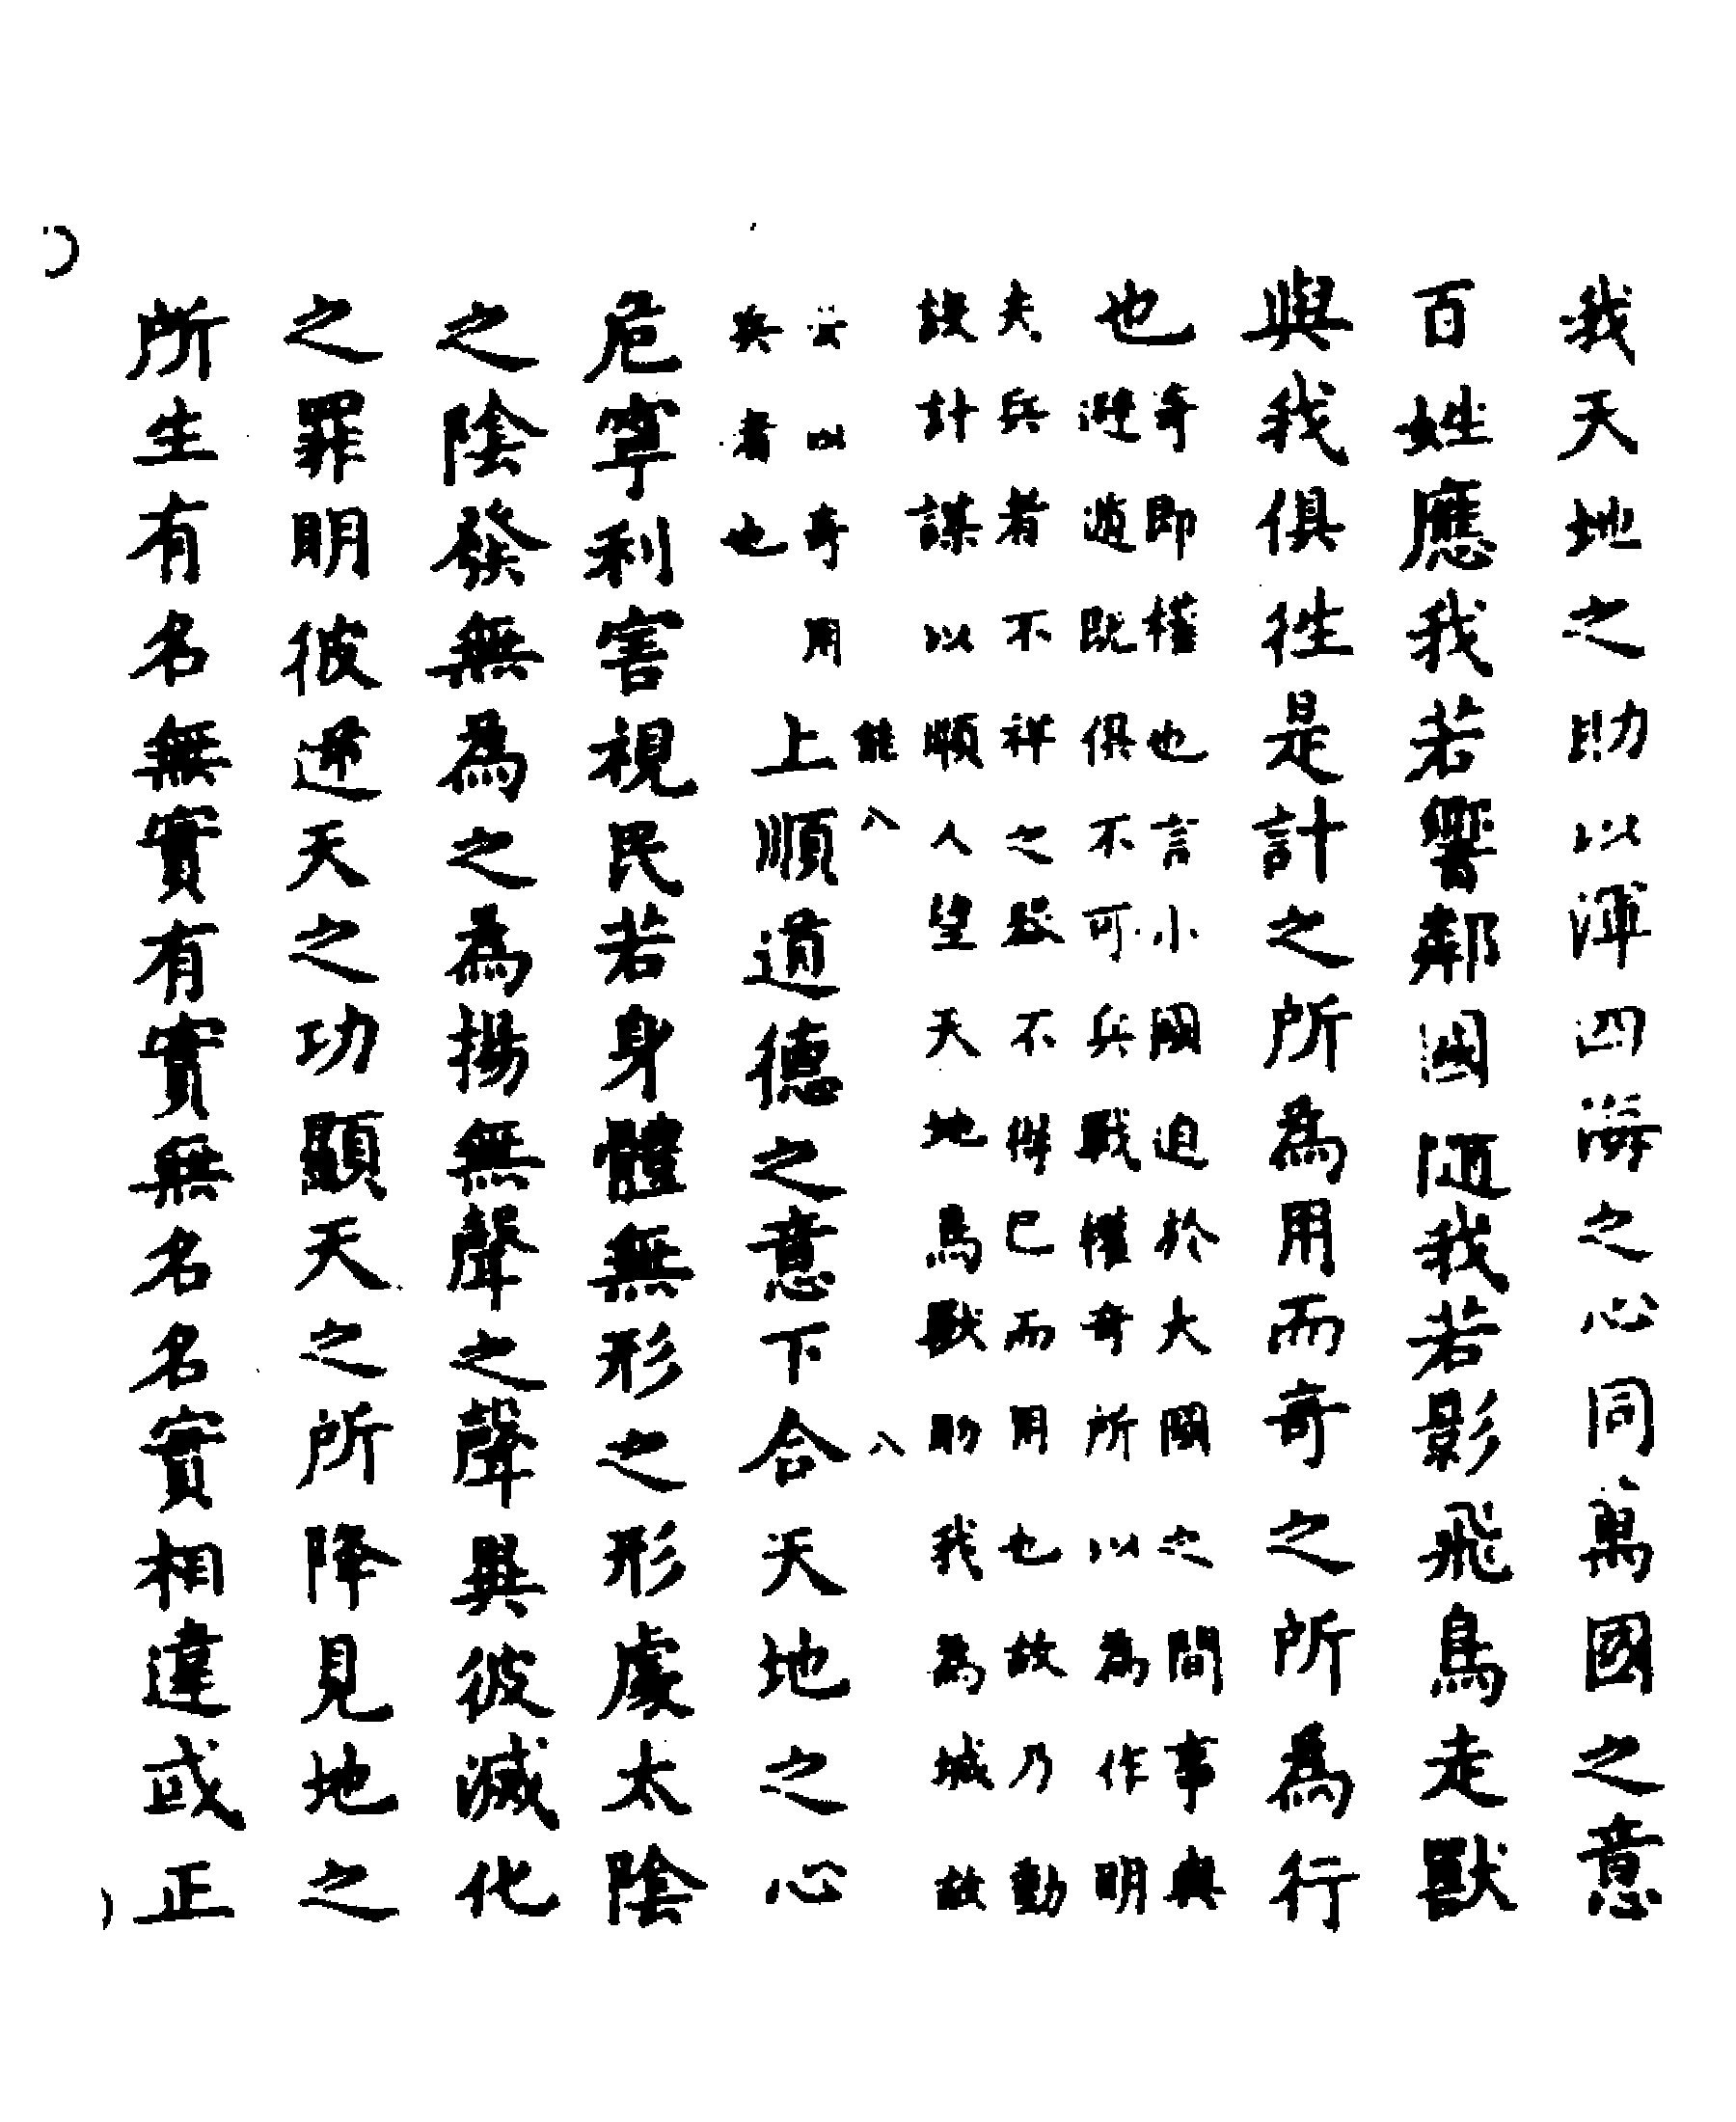 我天地之助以渾四海之心同萬國之意
百姓應我若響鄰國隨我若影飛鳥走獸
與我俱往是計之所為用而奇之所為行
也
奇即權也言小國迫於大國之間事與
避道既俱不可兵戰權奇所以為作明
夫兵者不祥之器不得已而用也故乃動
設計謀以順人望天地鳥獸助我為城故
以奇用
兵者也
能八
上順道德之意下合天地之心
八
危寧利害視民若身體無形之形處太陰
之陰發無為之為揚無聲之聲與彼滅化
之罪明彼逆天之功顯天之所降見地之
所生有名無實有實無名名實相違或正